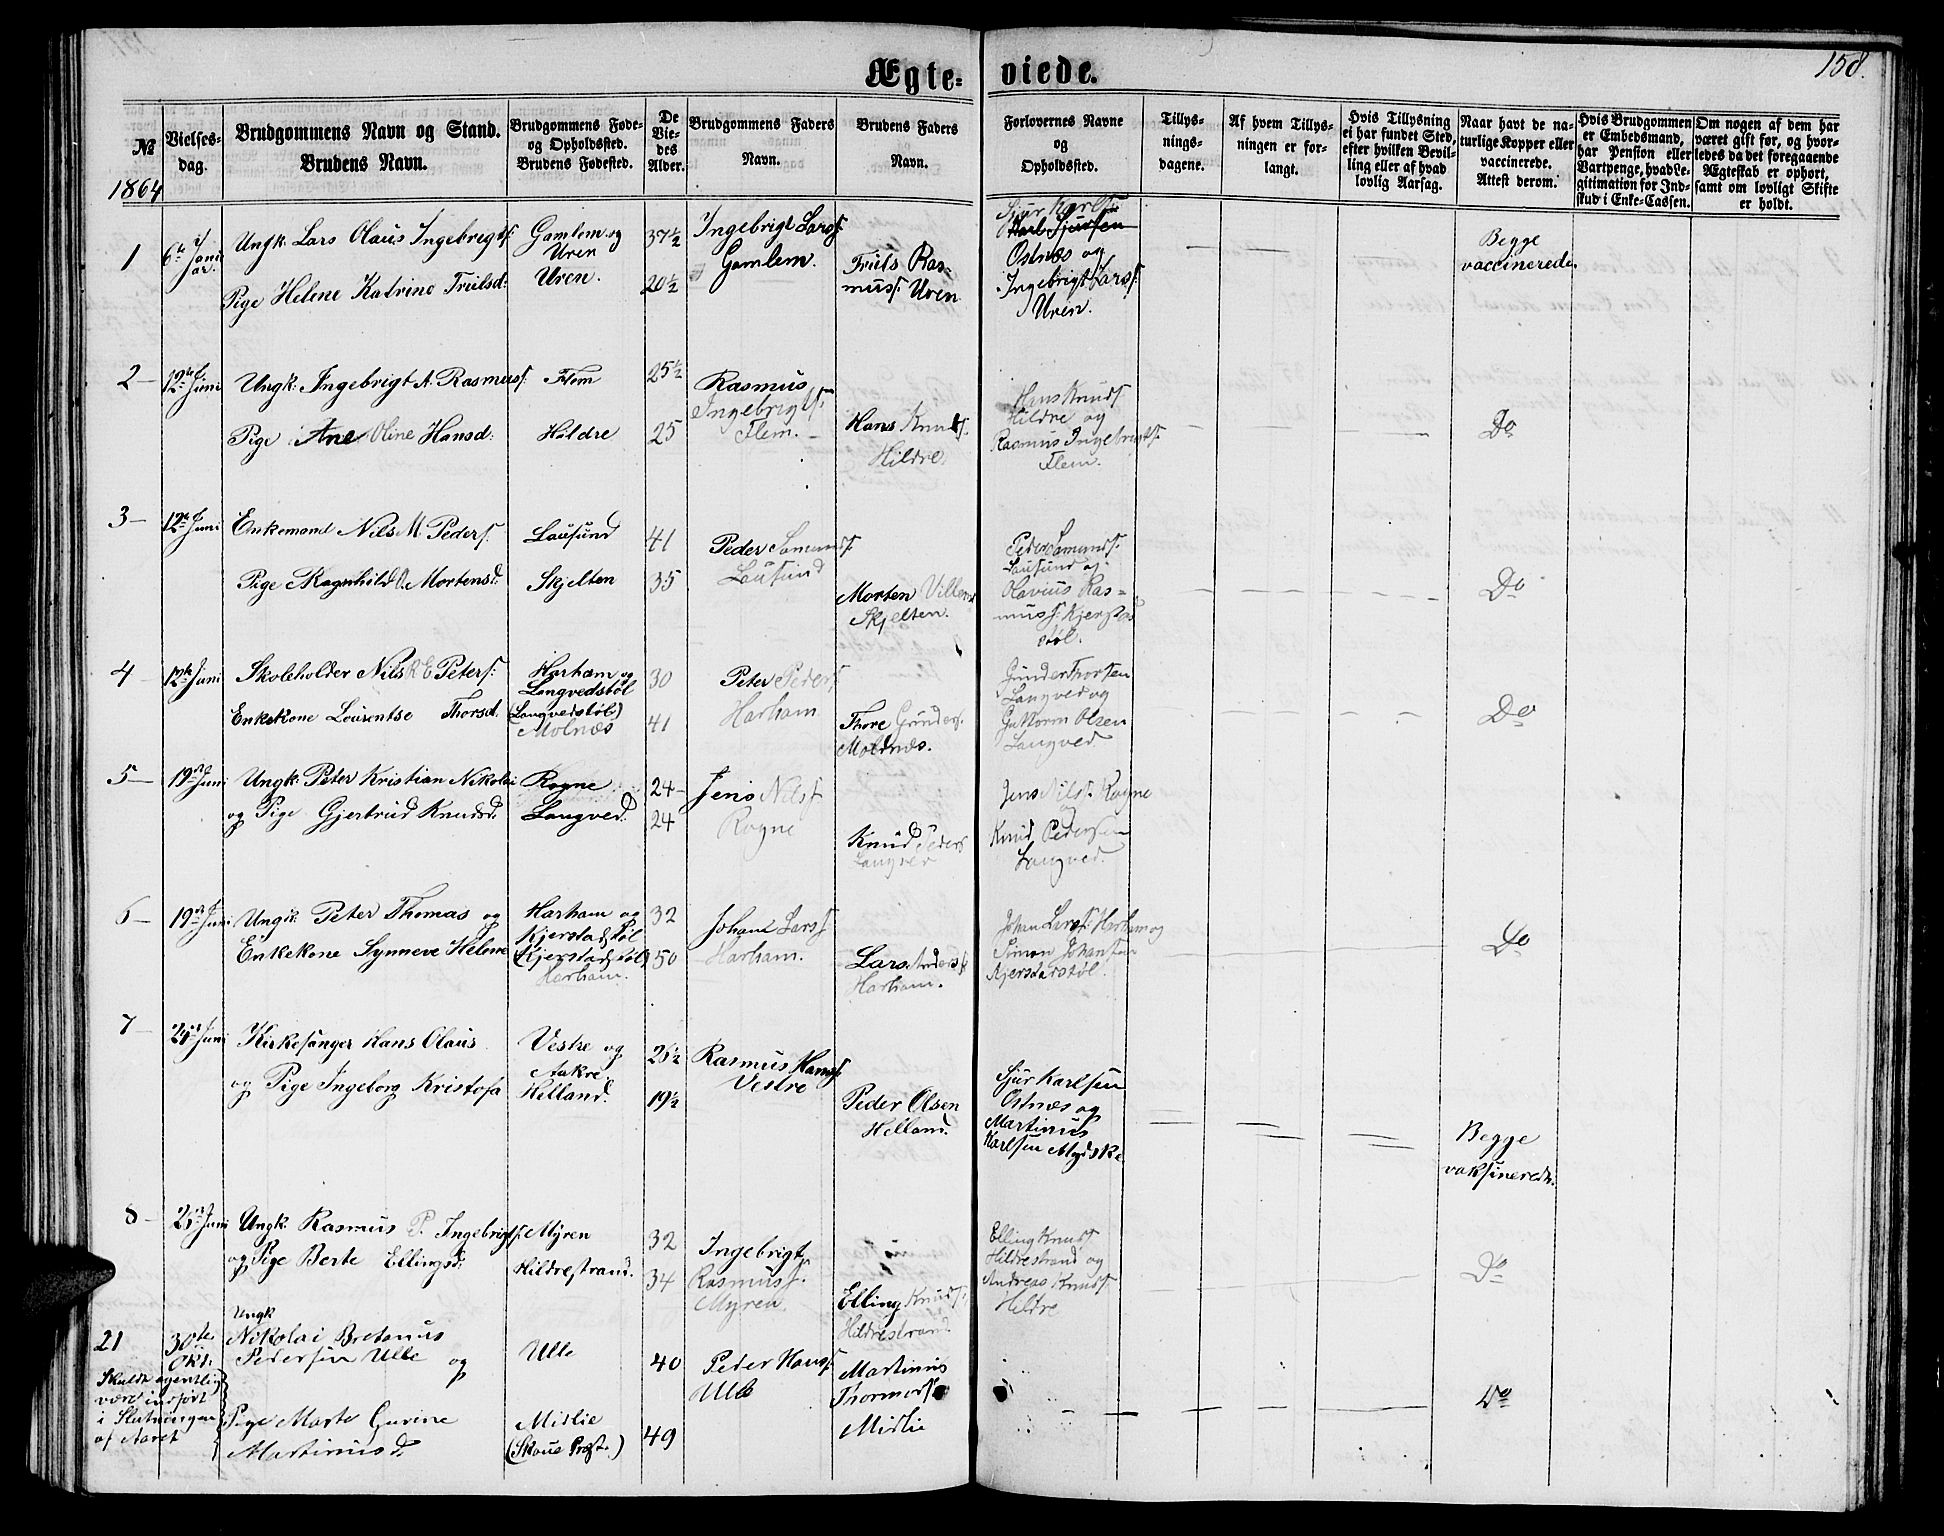 Ægte-viede.
158.
№
1864
Vielses-
dag.
Brudgommens Navn og Stand.
Brudens Navn.
Brudgommens Føde-
og Opholdssted.
Brudens Fødested.
De
Vie-
des
Alder.
Brudgommens Faders
Navn.
Brudens Faders
Navn.
Forlovernes Navne
og
Opholdssted.
Tillys-
nings-
dagene.
Af hvem Tillys-
ningen er for-
langt.
Hvis Tillysning
ei har fundet Sted,
efter hvilken Bevil-
ling eller af hvad
lovlig Aarsag.
Naar havt de na-
turlige Kopper eller
vaccinerede.
Attest derom.
Hvis Brudgommen
er Embedsmand,
har Pension eller
Vartpenge, hvad Le-
gitimation for Ind-
skud i Enke-Cassen.
Om nogen af dem har
været gift før, og hvor-
ledes da det foregaaende
Ægteskab er ophørt,
samt om lovligt Skifte
er holdt.
1
6te Januar
Ungk: Lars Olaus Ingebrigts:
Pige Helene Katrine Trulsd:
Gamlem og
Uren
Uren.
37½
20½
Ingebrigt Larss:
Gamlem.
Truls Ras-
muss: Uren
Sjur Karls:
Karl Sjursen
Ostnæs og
Ingebrigt Larss:
Uren.
Begge
vaccinerede.
2 -
12te Juni
Ungk: Ingebrigt A. Rasmuss:
Pige Ane Oline Hansd:
Flem
Hildre
25½
25
Rasmus
Ingebrigts:
Flem.
Hans Knuds:
Hildre
Hans Knuds:
Hildre og
Rasmus Ingebrigts:
Flem.
Do
3 -
12te Juni
Enkemand Nils M. Peders:
Pige Ragnhild O. Mortensd:
Lausund
Skjelten
41
35
Peder Samunds:
Lausund
Morten Villems
Skjelten.
Peder Samunds:
Lausund og
Olavius Ras-
muss: Kjerstad
støl.
Do
4 -
12te Juni
Skoleholder Nils R E Peters:
Enkekone Lourentse Thorsd.
Harham og
Langvedstøl
(Langvedstøl)
Molnæs
30
41
Peter Peders
Harham
Thore Gunders.
Moldnæs.
Gunder Thorsen
Langved og
Guttorm Olsen
Langved
Do
5 -
19de Juni
Ungk: Peter Kristian Nikolai
og Pige Gjertrud Knudsd:
Rogne
Langved.
24 -
24
Jens Nilss
Rogne
Knud Peders
Langved
Jens Nils: Rogne
og
Knud Pedersen
Langved.
6 -
19de Juni
Ungk: Peter Thomas og
Enkekone Synneve Helene
Harham og
Kjerstadstøl
(Kjerstadstøl)
Harham.
32
50
Johan Larss
Harham.
Lars Anders:
Harham.
Johan Larss: Harham og
Simon Johansen
Kjerstadstøl.
Do
7 -
24de Juni
Kirkesanger Hans Olaus
og Pige Ingeborg Kristofa
Vestre og
Aakre.
Helland.
26½
19½
Rasmus Hanss
Vestre
Peder Olsen
Helland.
Sjur Karlsen
Ostnæs og
Martinus
Karlsen Alydske
Begge
vaksinerede.
8 -
Juni
Ungk: Rasmus P. Ingebrigts:
og Pige Berte Ellingsd:
Myren
Hildrestrand.
32
34
Ingebrigt
Rasmuss:
Myren.
Elling Knuds:
Hildrestrand
Elling Knuds
Hildrestrand og
Andreas Knuds:
Hildre
Do
21
30te
Okt.
Skulde egentlig
være indført
i Slutningen
af Aaret
Ungk
Nikolai Bretanus
Pedersen Ulle og
Pige Marte Gurine
Martinusd.
Ulle
Midlie
(Skoue Præst.)
40
49
Peder Hanss
Ulle
Martinus
Thormods
Midlie
Do